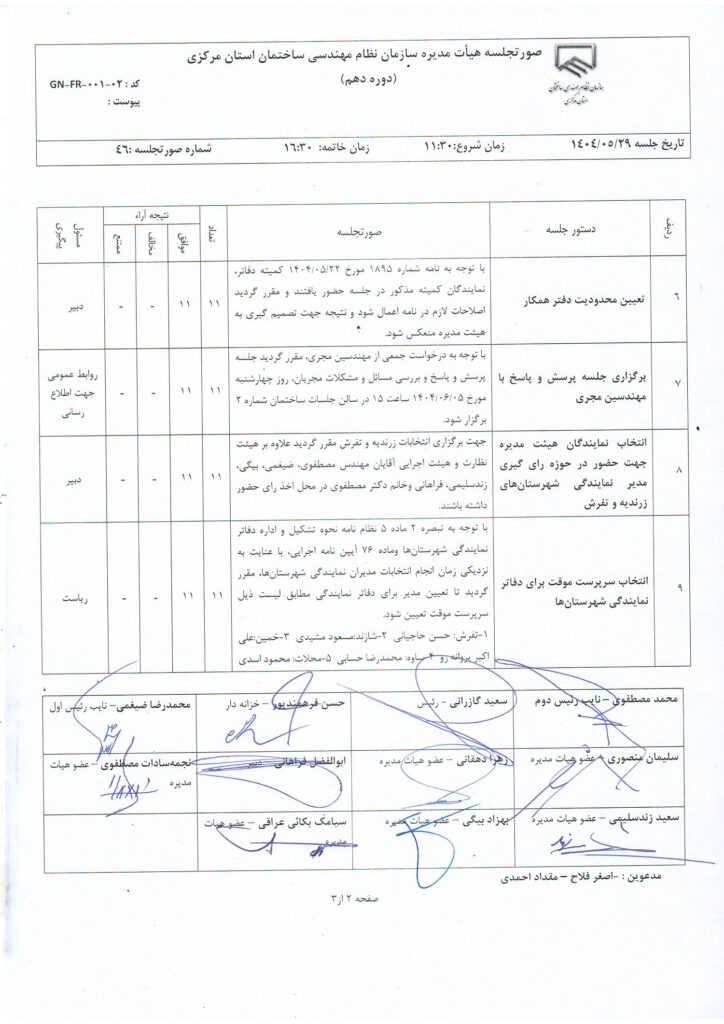 صورتجلسه هیأت مدیره سازمان نظام مهندسی ساختمان استان مرکزی
(دوره دهم)
سازمان نظام مهندسی ساختمان
استان مرکزی
کد : GN-FR-۰۰۱-۰۲
پیوست :
تاریخ جلسه ۱۴۰۴/۰۵/۲۹
زمان شروع:۱۱:۳۰
زمان خاتمه: ۱۶:۳۰
شماره صورتجلسه :۴۶
ردیف
دستور جلسه
صورتجلسه
تعداد
نتیجه آراء
موافق
مخالف
ممتنع
مسئول پیگیری
۶
تعیین محدودیت دفتر همکار
با توجه به نامه شماره ۱۸۹۵ مورخ ۱۴۰۴/۰۵/۲۲ کمیته دفاتر،
نمایندگان کمیته مذکور در جلسه حضور یافتند و مقرر گردید
اصلاحات لازم در نامه اعمال شود و نتیجه جهت تصمیم گیری به
هیئت مدیره منعکس شود.
۱۱
۱۱
-
-
دبیر
۷
برگزاری جلسه پرسش و پاسخ با
مهندسین مجری
با توجه به درخواست جمعی از مهندسین مجری، مقرر گردید جلسه
پرسش و پاسخ و بررسی مسائل و مشکلات مجریان، روز چهارشنبه
مورخ ۱۴۰۴/۰۶/۰۵ ساعت ۱۵ در سالن جلسات ساختمان شماره ۲
برگزار شود.
۱۱
۱۱
-
-
روابط عمومی
جهت اطلاع
رسانی
۸
انتخاب نمایندگان هیئت مدیره
جهت حضور در حوزه رای گیری
مدیر نمایندگی شهرستان‌های
زرندیه و تفرش
جهت برگزاری انتخابات زرندیه و تفرش مقرر گردید علاوه بر هیئت
نظارت و هیئت اجرایی آقایان مهندس مصطفوی، ضیغمی، بیگی،
زندسلیمی، فراهانی وخانم دکتر مصطفوی در محل اخذ رای حضور
داشته باشند.
۱۱
۱۱
-
-
دبیر
۹
انتخاب سرپرست موقت برای دفاتر
نمایندگی شهرستان‌ها
با توجه به تبصره ۲ ماده ۵ نظام نامه نحوه تشکیل و اداره دفاتر
نمایندگی شهرستان‌ها وماده ۷۶ آیین نامه اجرایی، با عنایت به
نزدیکی زمان انجام انتخابات مدیران نمایندگی شهرستان‌ها، مقرر
گردید تا تعیین مدیر برای دفاتر نمایندگی مطابق لیست ذیل
سرپرست موقت تعیین شود.
۱-تفرش: حسن حاجیانی ۲-شازند:مسعود مشیدی ۳-خمین:علی
اکبر پروانه رو ۴-ساوه: محمدرضا حسابی ۵-محلات: محمود اسدی
۱۱
۱۱
-
-
ریاست
محمد مصطفوی – نایب رئیس دوم
سعید گازرانی - رئیس
حسن فرهمندپور – خزانه دار
محمدرضا ضیغمی – نایب رئیس اول
سلیمان منصوری – عضو هیات مدیره
زهرا دهقانی – عضو هیات مدیره
ابوالفضل فراهانی – دبیر
نجمه‌سادات مصطفوی – عضو هیات
مدیره
سعید زندسلیمی – عضو هیات مدیره
بهزاد بیگی – عضو هیات مدیره
سیامک بکائی عراقی – عضو هیات
مدیره
مدعوین : -اصغر فلاح – مقداد احمدی
صفحه ۲ از ۳